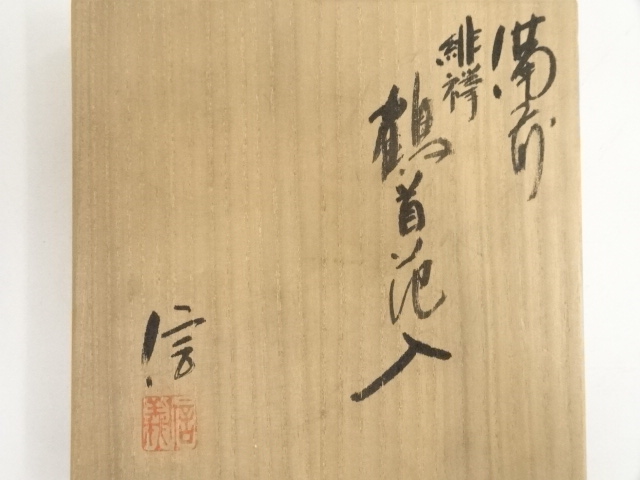 備前
緋襷
鶴首花入
信
信義